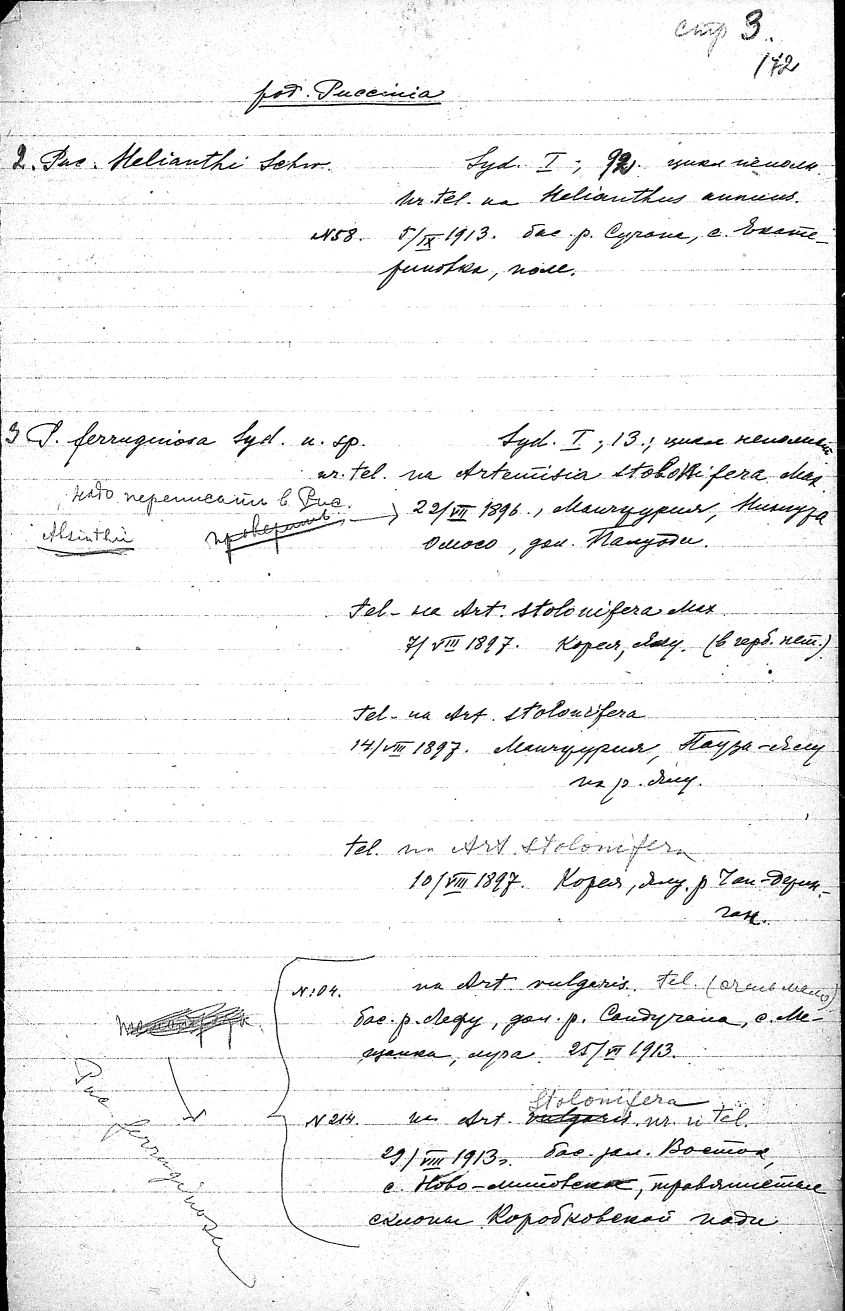 стр 3.
172
род. Puccinia
2. Puc. Helianthi Schw. Syd. I; 92. цикл неполн.
ur. tel. на Helianthus annuus.
N58. 5/IX 1913. бас. р. Сучана, с. Екате-
риновка, поле.
3 P. ferruginosa Syd. n. sp. Syd. I; 13.; цикл неполный
ur. tel. на Artemisia stolonifera Max.
надо переписать в Puc. 22/VII 1896., Манчжурия,
Absinthii проверить Омосо, дол.
tel- на Art. stolonifera Max
7/VIII 1897. Корея, Ялу. (в герб. нет.)
tel- на Art. stolonifera
14/VIII 1897. Манчжурия, Пауза-Ялу
на р. Ялу.
tel. на Art. stolonifera
10/VIII 1897. Корея, Ялу. р
N104. на Art. vulgaris. tel. (очень мало)
бас. р. Лефу, дол. р. Сандучана, с. Ме-
щанка, луга 25/VI 1913.
Puc. ferruginosa
Stolonifera
N214. на Art. vulgaris. ur. и tel.
29/VIII 1913г. бас. зал. Восток,
с. Ново-литовская, травянистые
склоны Коробковской пади